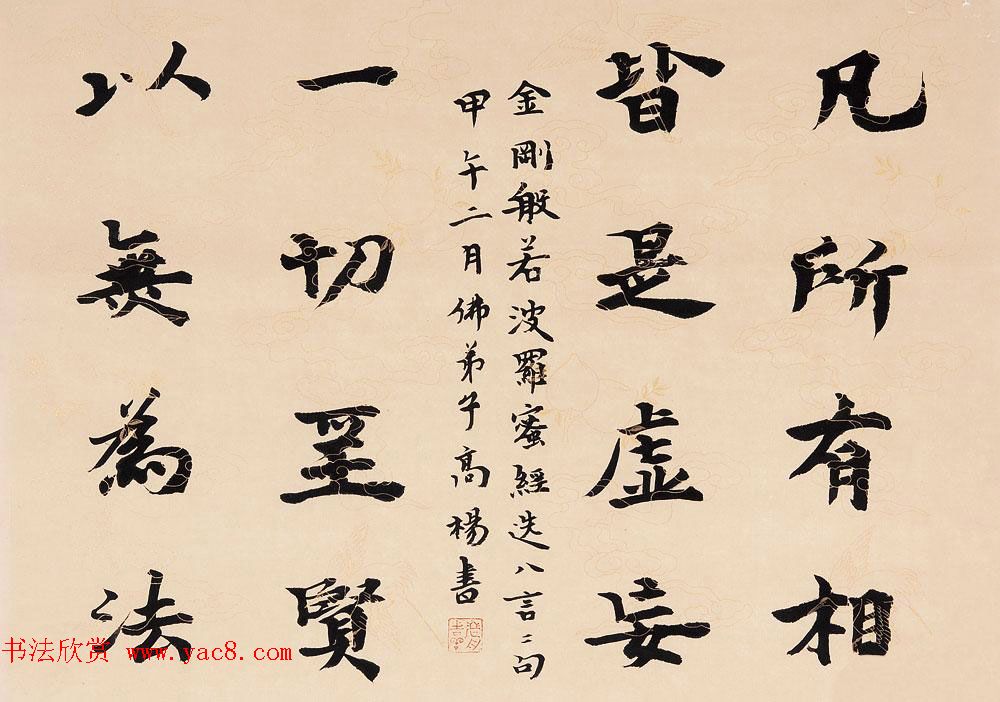 凡所有相
皆是虚妄
金剛般若波羅蜜經迭八言二句
甲午二月佛弟子高楊書
一切聖賢
以無為法
书法欣赏 www.yac8.com